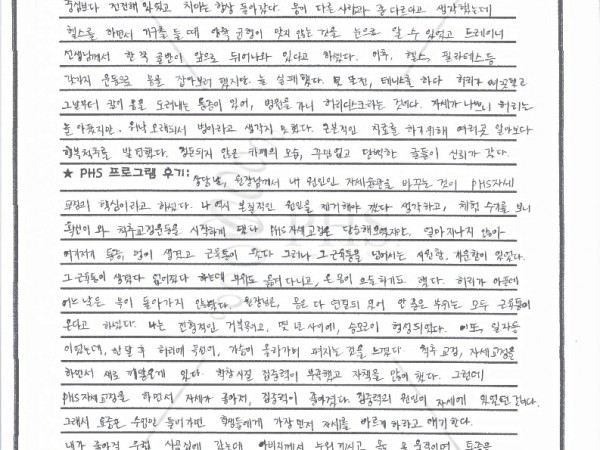 중심보다 진전해 있었고 치아는 항상 돌아갔다. 몸이 다른 사람과 좀 다르다고 생각했는데
헬스를 하면서 기구를 들 때 양쪽 균형이 맞지 않는 것을 눈으로 알 수 있었고 트레이너
선생님께서 한 쪽 골반이 앞으로 튀어나와 있다고 하였다. 이후, 헬스, 필라테스등
갖가지 운동으로 몸을 잡아보려 했지만 늘 실패했다. 몇 달전, 테니스를 하다 허리가 삐끗했고
그날부터 잠이 몸을 도려내는 통증이 있어, 병원을 가니 허리디스크라는 것이다. 자세가 나쁘니 허리는
늘 아팠지만, 워낙 오래되서 병이라고 생각지 못했다. 근본적인 치료를 하기위해 여러곳 알아보다
행복척추를 발견했다. 정돈되지 않은 카페의 모습, 꾸밈없고 담백한 글들이 신뢰가 갔다.
★ PHS 프로그램 후기: 상담날, 원장님께서 내 원인인 자세습관을 바꾸는 것이 PHS자세
교정의 핵심이라고 하였다. 나 역시 본질적인 원인을 제거해야 겠다 생각하고, 체험 수기를 보니
확신이 와 척추교정운동을 시작하게 됐다. PHS자세교정은 단순해보였지만, 얼마 지나지 않아
여기저기 통증, 멍이 생기고 근육통이 왔다. 그러나 그 근육통을 넘어서는 시원함, 개운함이 있었다.
그 근육통이 생겼다 없어졌다 하는데 부위도 옮겨 다니고, 온 몸이 으슬하기도 했다. 허리가 아픈데
어느 날은 목이 돌아가지 않았다. 원장님은, 몸은 다 연결되 있어 안 좋은 부위는 모두 근육통이
온다고 하였다. 나는 전형적인 거북목이고, 몇 년 사이에, 승모근이 형성되었다. 어깨도 일자등
이었는데, 한 달 후 허리에 곡선이, 가슴이 올라가며 펴지는 것을 느꼈다. 척추 교정, 자세교정을
하면서 새로 깨달은게 있다. 학창시절 집중력이 부족했고 자책을 많이 했다. 그런데
PHS자세교정을 하면서 자세가 좋아져, 집중력이 좋아졌다. 집중력의 원인이 자세에 있었던 것이다.
그래서 요즘은 수업에 들어가면 학생들에게 가장 먼저 자세를 바르게 하라고 얘기한다.
내가 좋아진 모습 시골집에 갔는데 아버지께서 누워 계시고 몸을 못 움직이며 통증은